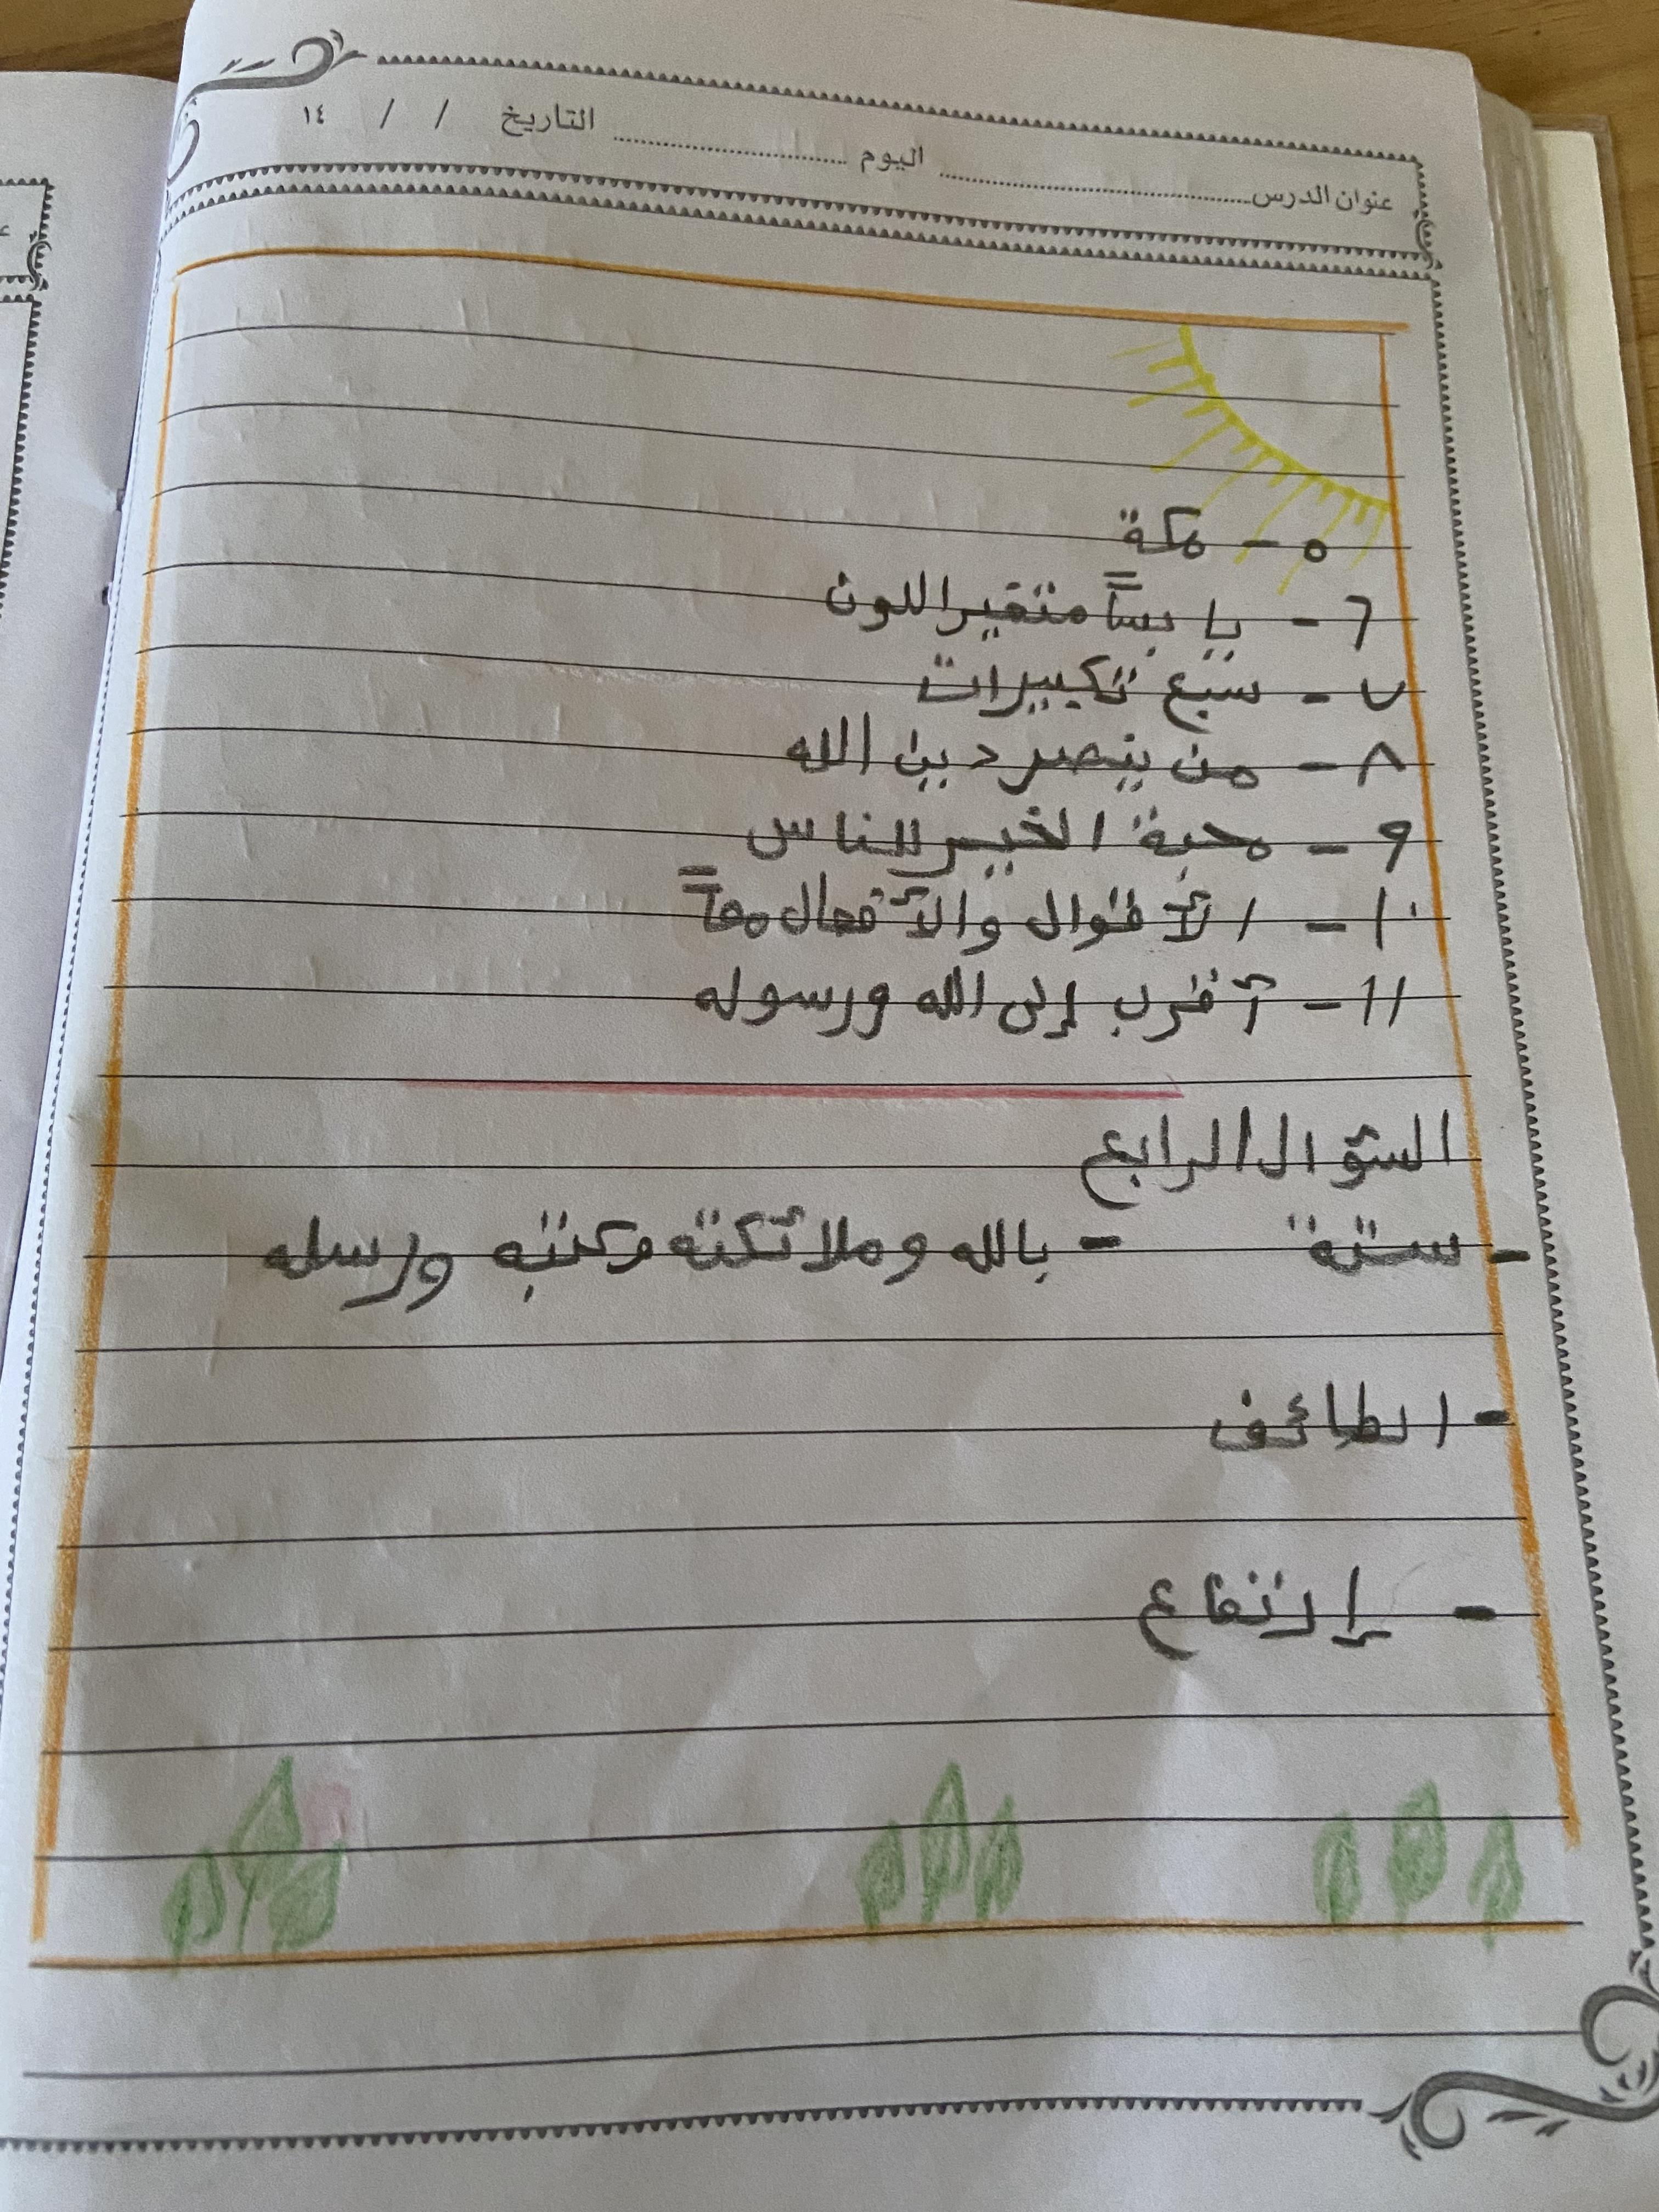 عنوان الدرس اليوم التاريخ / / ١٤
٥ - مكة
٦ - يابساً متغير اللون
٧ - سبع تكبيرات
٨ - من ينصر دين الله
٩ - محبة الخير للناس
١٠ - الأقوال والأفعال معاً
١١ - أقرب إلى الله ورسوله
السؤال الرابع
- ستة - بالله وملائكته وكتبه ورسله
- الطائف
- إرتفاع